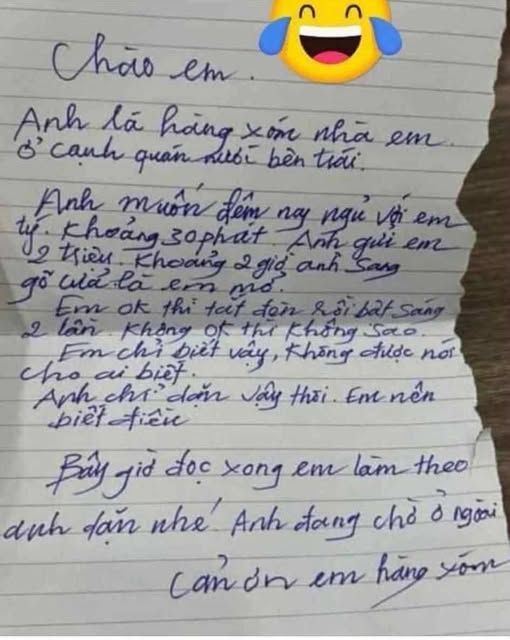 Chào em.
Anh là hàng xóm nhà em.
ở cạnh quán nước bên trái.
Anh muốn đêm nay ngủ với em
tý. Khoảng 30 phát. Anh gửi em
2 triệu. Khoảng 2 giờ anh sang
gõ cửa là em mở.
Em ok thì tắt đèn rồi bật sáng
2 lần. Không ok thì không sao.
Em chỉ biết vậy, không được nói
cho ai biết.
Anh chỉ dặn vậy thôi. Em nên
biết điều
Bây giờ đọc xong em làm theo
anh dặn nhé. Anh đang chờ ở ngoài
Cản ơn em hàng xóm